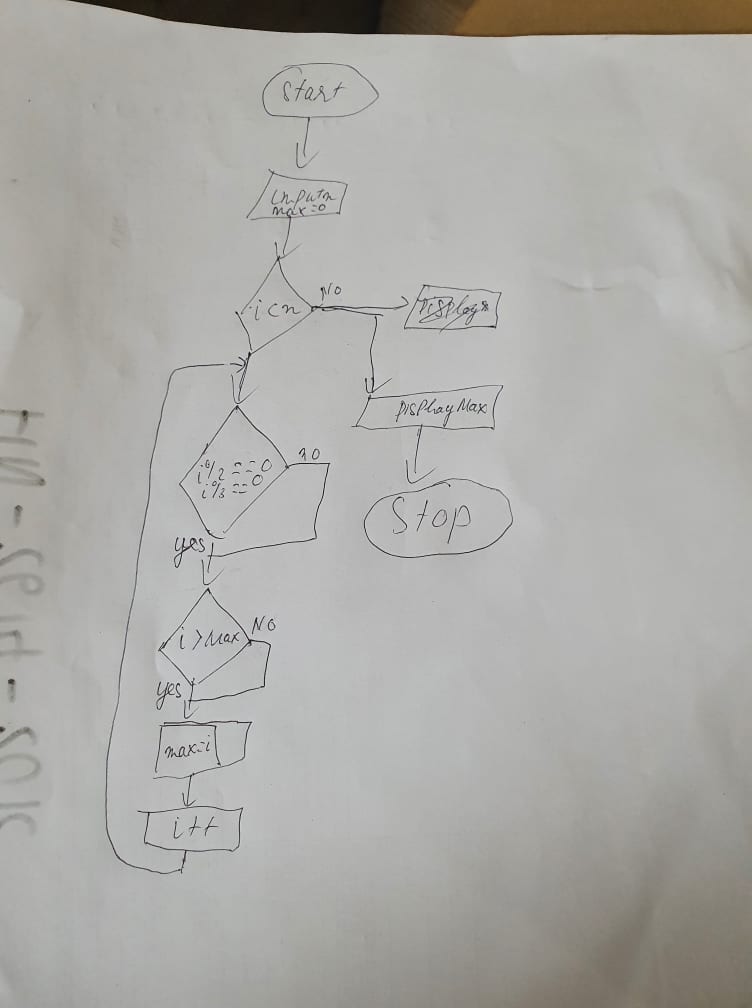 Start
Inputn
max=0
i<n
NO
Display
DisplayMax
i%2==0
i%3==0
no
yes
Stop
i>Max
NO
yes
max=i
i++